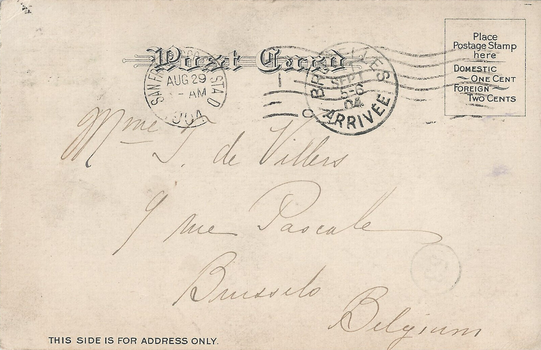 Post Card
Place
Postage Stamp
here
DOMESTIC
ONE CENT
FOREIGN
TWO CENTS
SAN FRANCISCO STA D
AUG 29
AM
1904
BRUXELLES
SEPT
5-6
04
ARRIVÉE
Mme J. de Villers
9 rue Pascale
Brussels
Belgium
THIS SIDE IS FOR ADDRESS ONLY.